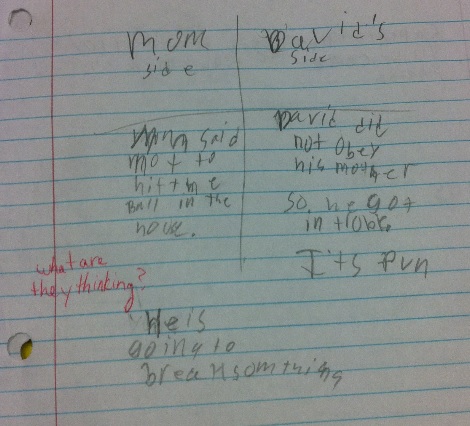 mom
side
David's
side
Mom said
mot to
hit the
Ball in the
house.
David dit
not ober
his mother
so. he got
in trobr.
It's Fun
what are
they thinking?
He is
going to
break somthing